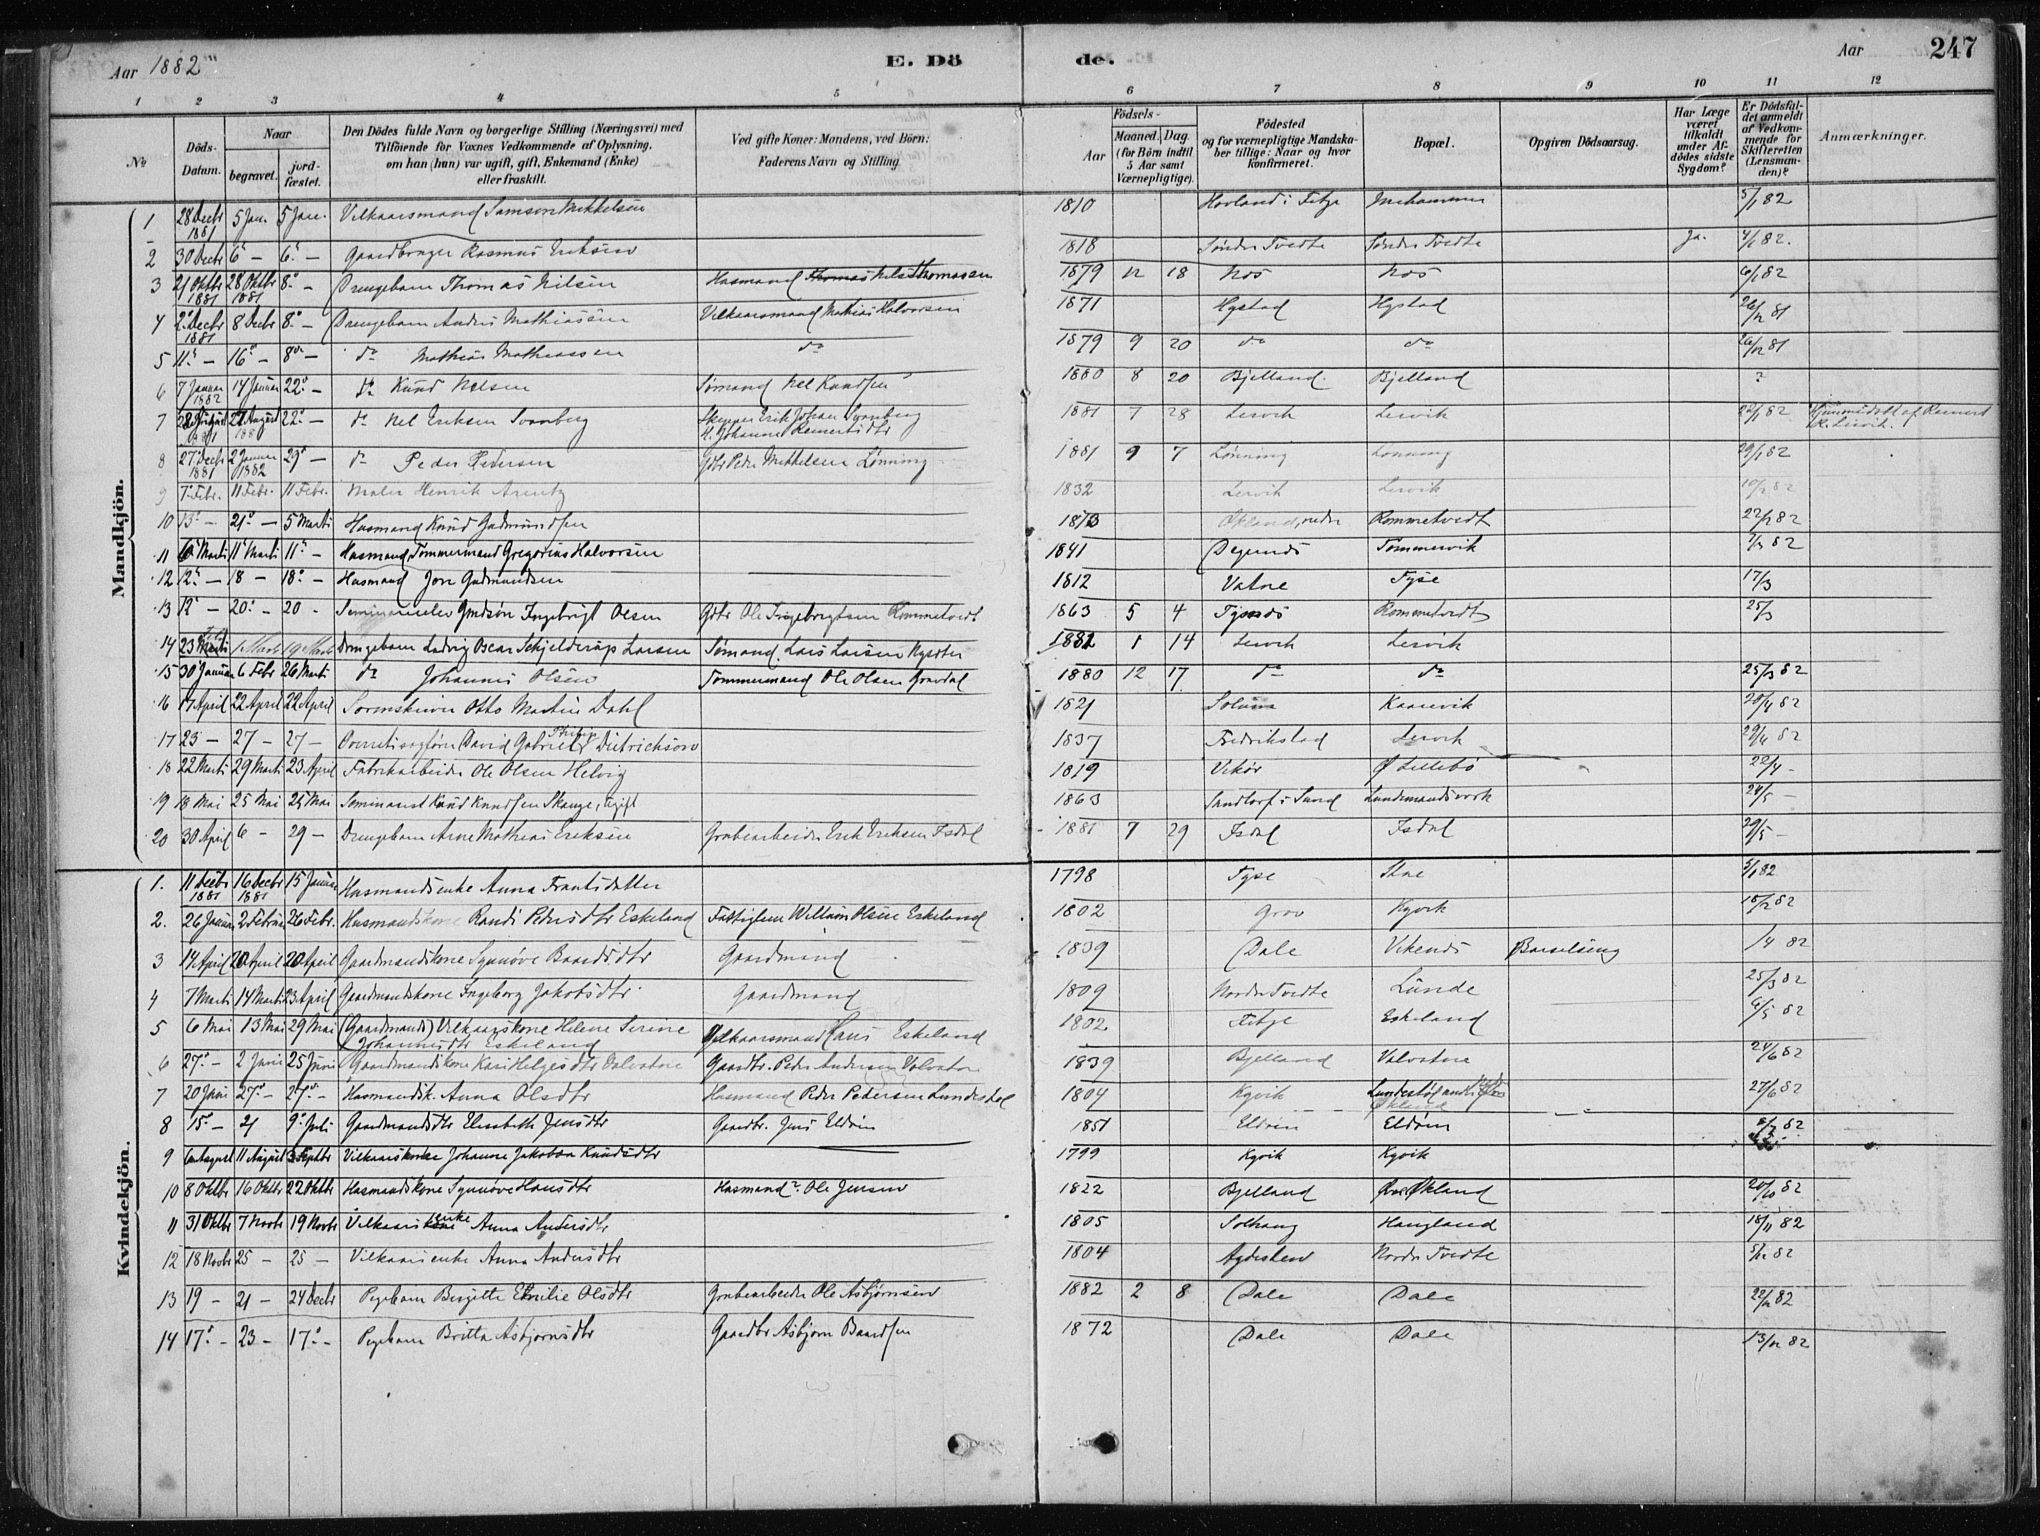 Aar 1882
E. Dö
de.
Aar
247
1 2 3 4 5 6 7 8 9 10 11 12
No
Döds-Datum.
Naar
begravet.
jordfæstet.
Den Dödes fulde Navn og borgerlige Stilling (Næringsvei) med
Tilföiende for Voxnes Vedkommende af Oplysning,
om han (hun) var ugift, gift, Enkemand (Enke)
eller fraskilt.
Ved gifte Koner: Mandens, ved Börn:
Faderens Navn og Stilling.
Födsels-
Aar
Maaned. Dag.
(for Börn indtil
5 Aar samt
Værnepligtige).
Födested
og for værnepligtige Mandskaber tillige: Naar og hvor
konfirmeret.
Bopæl.
Opgiven Dödsaarsag.
Har Læge
været
tilkaldt
under Afdödes sidste
Sygdom?
Er Dödsfaldet anmeldt
af Vedkommende for
Skifteretten
(Lensmanden)?
Anmærkninger.
Mandkjön.
1 28 Decbr 1881 5 Jan. 5 Jan. Vilkaarsmand Samson Mikkelsen 1810 Hovland i Fitje 5/1 82
2 30 Decbr 6 - 6 - Gaardbruger Rasmus Eriksen 1818 Söndre Tvedte Söndre Tvedte Ja. 4/1 82.
3 21 Oktbr 1881 28 Oktbr 1881 8 - Drengebarn Thomas Nilsen Husmand Nils Thomassen 1879 12 18 Nos Nos 6/1 82
4 2 Decbr 1881 8 Decbr 8 - Drengebarn Anders Mathiassen Vilkaarsmand Mathias Halvorsen 1871 Hystad Hystad 26/12 81
5 11 - 16 - 8 - do Mathias Mathiassen do 1879 9 20 do do 26/12 81
6 7 Januar 1882 14 Januar 22 - do Knud Nelsen Sömand Nel Knudsen 1880 8 20 Bjelland Bjelland ?
7 27 August 22 - do Nel Eriksen Svanberg Skipper Erik Johan Svanberg H. Johanne Reinertsdtr 1881 7 28 Lervik Lervik 22/1 82
8 27 Decbr 1881 2 Januar 1882 29 - do Peder Pedersen Gdbr Peder Mikkelsen Lönning 1881 9 7 Lönning Lönning 29/1 82
9 7 Febr. 11 Febr. 11 Febr. Maler Henrik Arentz 1832 Lervik Lervik 10/2 82
10 13 - 21 - 5 Marti Husmand Knud Gudmundsen Økland, nedre Rommetvedt 22/2 82
11 6 Marti 11 Marti 11 - Husmand, Tömmermand Gregorius Halvorsen 1841 Tömmervik 7/3 82
12 12 - 18 - 18 - Husmand Jon Gudmundsen 1812 Vatne Fyse 17/3
13 12 - 20 - 20 - Ingebrigt Olsen Gdbr Ole Ingebrigtsen Rommetvedt 1863 5 4 Rommetvedt 25/3
14 23 Drengebarn Ludvig Oscar Schjelderup Larsen Sömand Lars Larsen 1881 1 14 Lervik Lervik
15 30 Januar 6 Febr 26 Marti do Johannes Olsen Tömmermand Ole Olsen Gravdal 1880 12 17 do do 25/3 82
16 17 April 22 April 22 April Sorenskriver Otto Martin Dahl 1821 Kaarevik 20/4 82
17 23 - 27 - 27 - Overretssagförer David Gabriel Ditrichson 1837 Fredrikstad Lervik 29/4 82
18 22 Marti 29 Marti 23 April Fabrikarbeider Ole Olsen Helvig 1819 Vikör Ø Lillebö 22/4 -
19 18 Mai 25 Mai 25 Mai Seminarist Knud Knudsen Skauge, ugift 1863 Sandtorf i Sund Lundemandsverk 24/5 -
20 30 April 6 - 29 - Drengebarn Arne Mathias Eriksen Grubearbeider Erik Eriksen Isdal 1881 7 29 Isdal Isdal 29/5 -
Kvindekjön.
1. 11 Decbr 1881 16 Decbr 1881 15 Januar Husmandsenke Anna Frantsdatter 1798 Fyse 5/1 82
2. 26 Januar 2 Februar 26 Febr. Husmandskone Randi Pedersdtr Eskeland Fattiglem Willum Olsen Eskeland 1802 Grov Kyvik 15/2 82
3 14 April 20 April 20 April Gaardmandskone Synnöve Baardsdtr Gaardmand 1839 Dale Vikenes Barselseng 1/4 82
4 7 Marti 14 Marti 23 April Gaardmandskone Ingeborg Jakobsdtr Gaardmand 1809 Nordre Tvedte Lunde 25/3 82
5 6 Mai 13 Mai 29 Mai (Gaardmands) Vilkaarskone Helene Serine Johannesdtr Eskeland Vilkaarsmand Hans Eskeland 1802 Fitje Eskeland 6/5 82
6 27 - 2 Juni 25 Juni Gaardmandskone Kari Helgesdtr Valvatne Gaardbr. Peder Andersen Valvatne 1839 Bjelland Valvatne 24/6 82
7 20 Juni 27 - 27 - Husmandsk. Anna Olsdtr Husmand Peder Pedersen Lundestöl 1804 Kyvik Lundestöl under Økland 27/6 82
8 15 - 21 9 Juli Gaardmandsdtr Elisabeth Jensdtr Gaardbr. Jens Eldöen 1851 Eldöen Eldöen 82
9 6 August 11 August 3 Septbr Vilkaarskone Johanne Jakobea Knudsdtr 1799 Kyvik Kyvik
10 8 Oktbr 16 Oktbr 22 Oktbr Husmandskone Synnöve Hansdtr Husmand Ole Jensen 1822 Bjelland Øvre Økland 20/10 82
11 31 Oktbr 7 Novbr 19 Novbr Vilkaarsenke Anna Andersdtr 1805 Solhaug Haugland 18/11 82
12 18 Novbr 25 - 25 - Vilkaarsenke Anna Andersdtr 1804 Agdesteen Nordre Tvedte 5/12 82
13 19 - 21 - 24 Decbr Pigebarn Birgitte Emilie Olsdtr Grubearbeider Ole Asbjörnsen 1882 2 8 Dale Dale 22/12 82
14 17 - 23 - 17 - Pigebarn Britta Asbjörnsdtr Gaardbr Asbjörn Baardsen 1872 Dale Dale 13/12 82